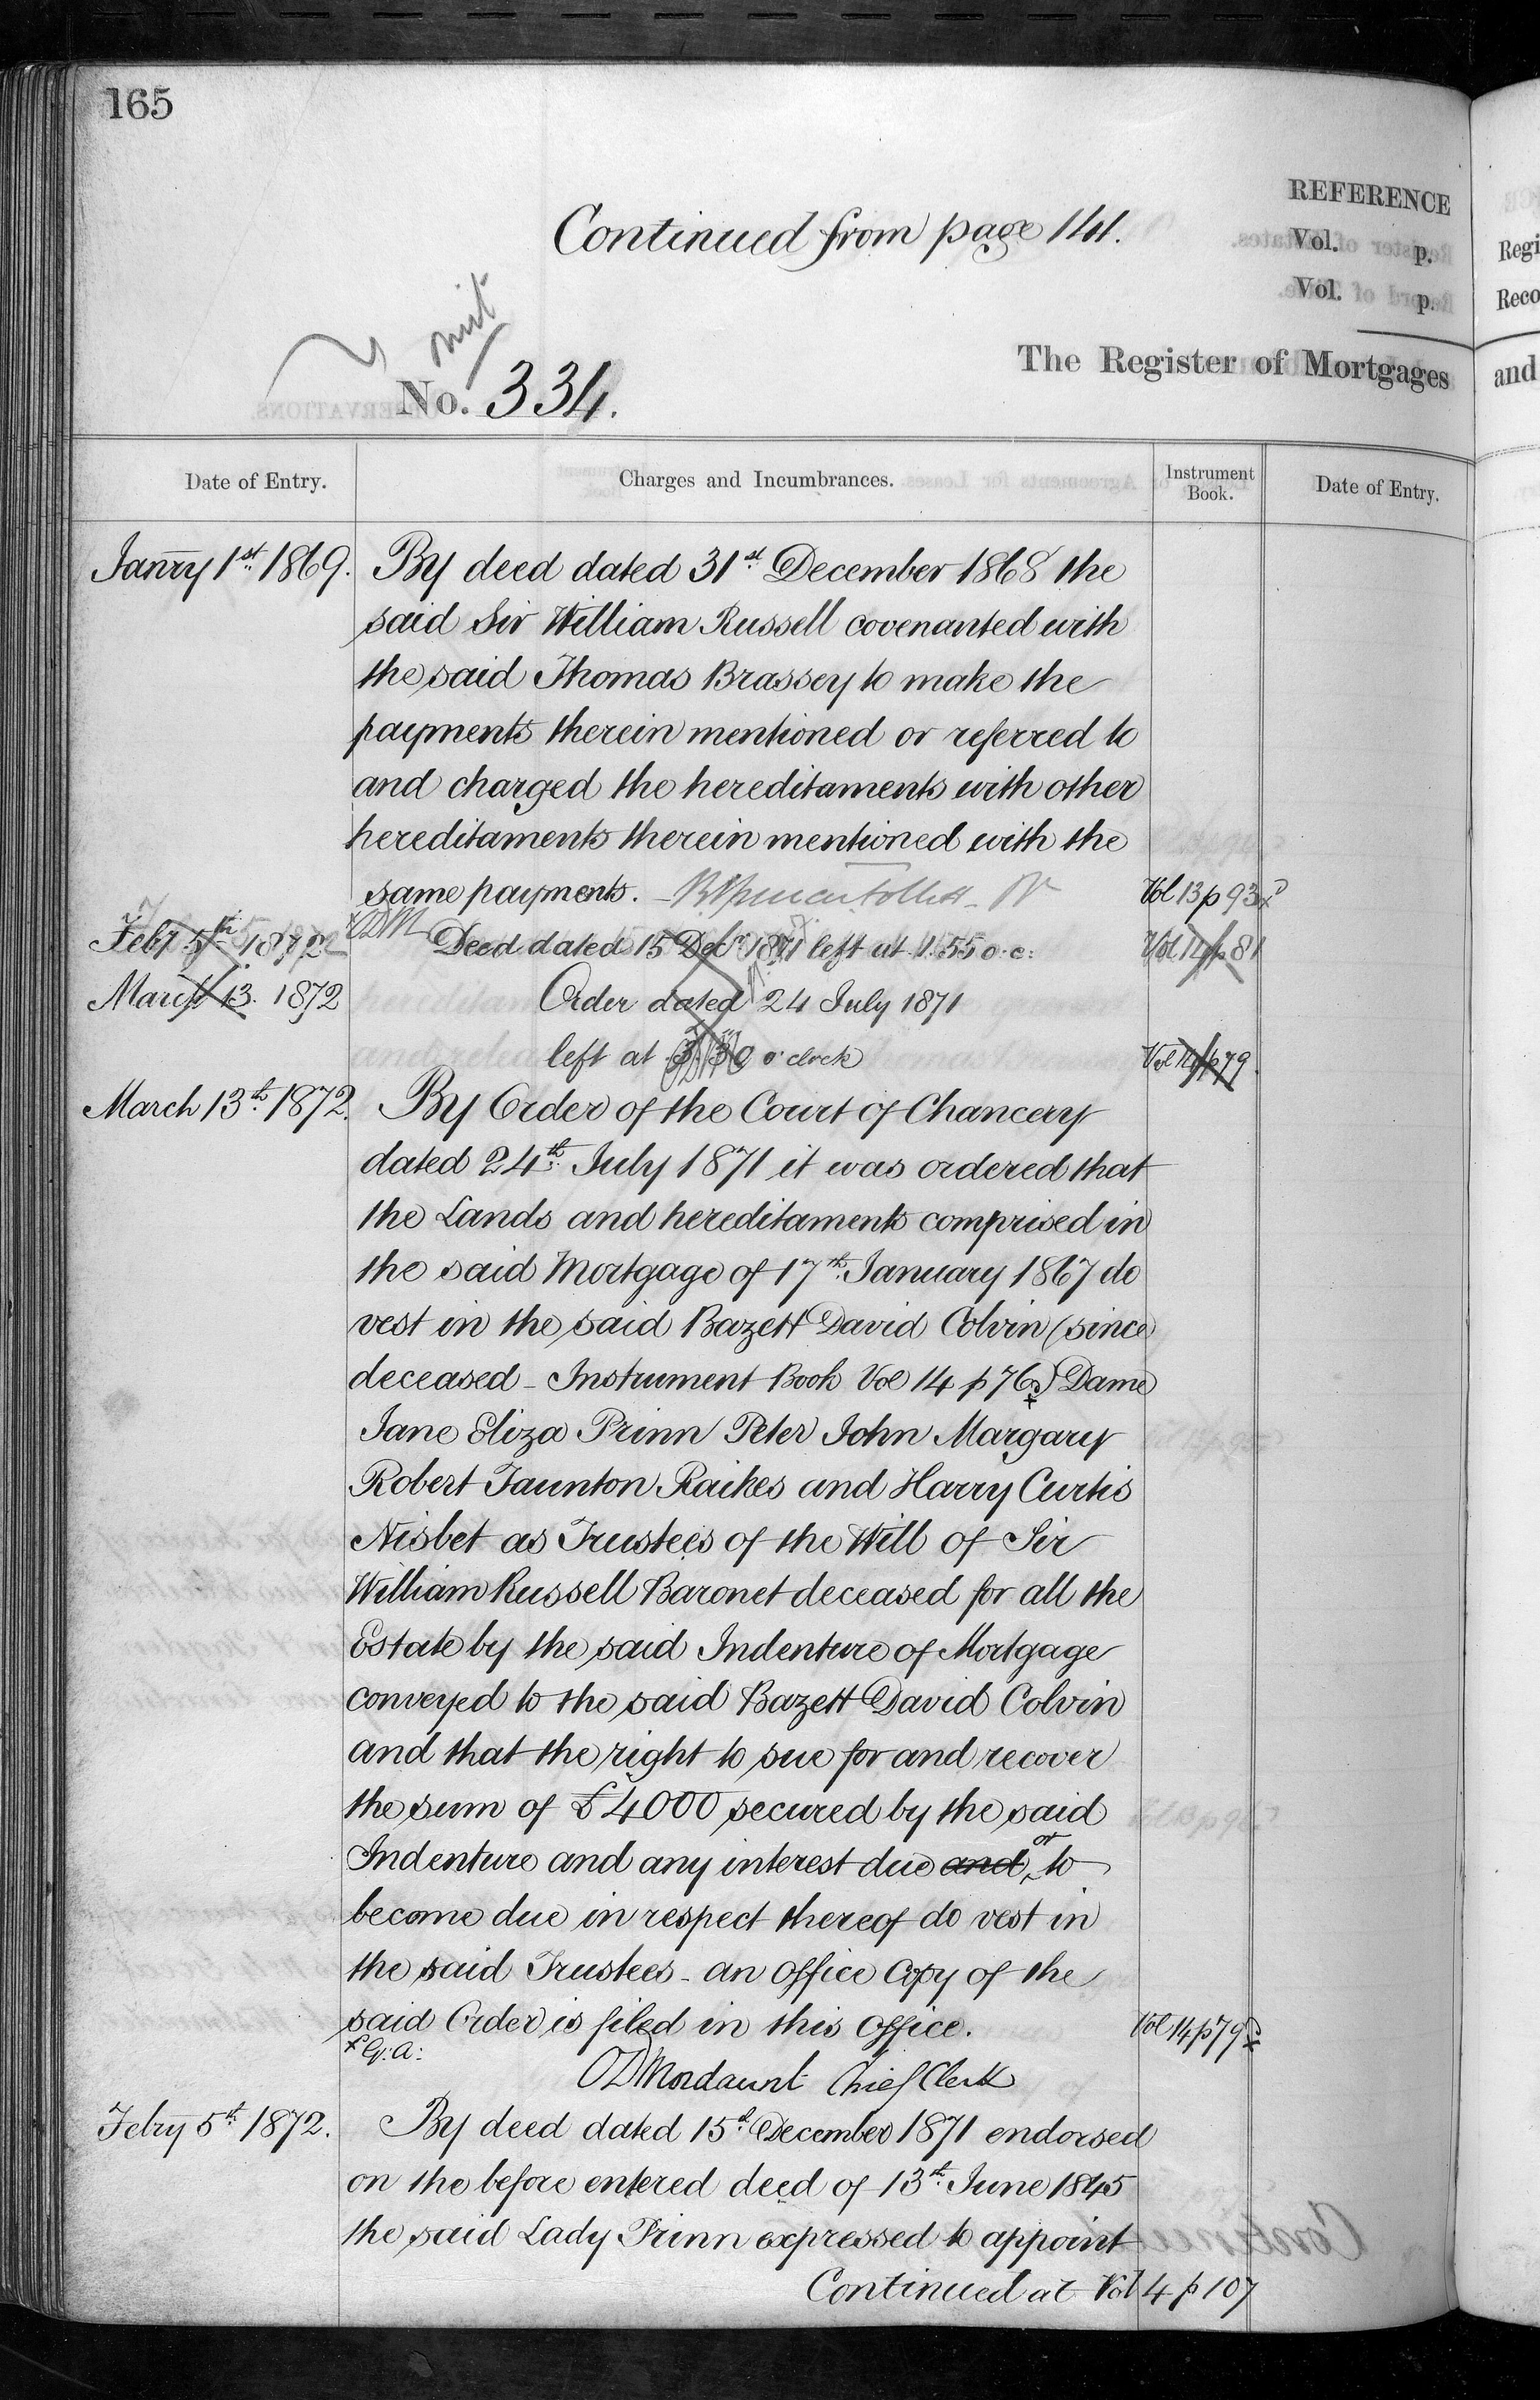 165
REFERENCE
Continued from page 141.
Vol. p.
Vol. p.
The Register of Mortgages
No. 334.
Date of Entry. Charges and Incumbrances. Instrument Book. Date of Entry.
Janry 1st 1869. By deed dated 31st December 1868 the
said Sir William Russell covenanted with
the said Thomas Brassey to make the
payments therein mentioned or referred to
and charged the hereditaments with other
hereditaments therein mentioned with the
same payments. Vol 13 p 93
Feby 5th 1872 ODM Deed dated 15 Decr 1871 left at 1.55 o.c: Vol 14 p 81
March 13. 1872 Order dated 24 July 1871
left at 3.30 o'clock Vol 14 p 79.
March 13th 1872. By Order of the Court of Chancery
dated 24th July 1871 it was ordered that
the Lands and hereditaments comprised in
the said Mortgage of 17th January 1867 do
vest in the said Bazett David Colvin (since
deceased - Instrument Book Vol 14 p 76) Dame
Jane Eliza Prinn Peter John Margary
Robert Taunton Raikes and Harry Curtis
Nisbet as Trustees of the Will of Sir
William Russell Baronet deceased for all the
Estate by the said Indenture of Mortgage
conveyed to the said Bazett David Colvin
and that the right to sue for and recover
the sum of £4000 secured by the said
Indenture and any interest due and or to
become due in respect thereof do vest in
the said Trustees - an Office Copy of the
said Order is filed in this Office. Vol 14 p 79
x G. A: ODMordaunt Chief Clerk
Febry 5th 1872. By deed dated 15th December 1871 endorsed
on the before entered deed of 13th June 1845
the said Lady Prinn expressed to appoint
Continued at Vol 4 p 107
Regi
Reco
and